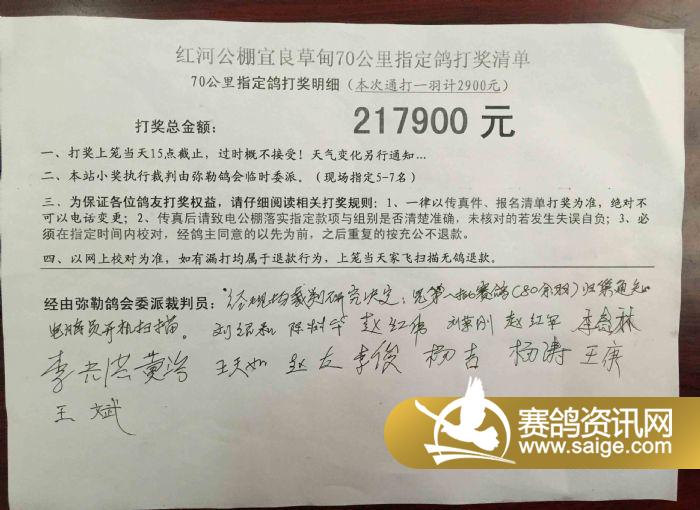 红河公棚宜良草甸70公里指定鸽打奖清单
70公里指定鸽打奖明细（本次通打一羽计2900元）
打奖总金额： 217900 元
一、打奖上笼当天15点截止，过时概不接受！天气变化另行通知…
二、本站小奖执行裁判由弥勒鸽会临时委派。（现场指定5-7名）
三、为保证各位鸽友打奖权益，请仔细阅读相关打奖规则：1、一律以传真件、报名清单打奖为准，绝对不
可以电话变更；2、传真后请致电公棚落实指定款项与组别是否清楚准确，未核对的若发生失误自负；3、必
须在指定时间内校对，经鸽主同意的以先为前，之后重复的按充公不退款。
四、以网上校对为准，如有漏打均属于退款行为，上笼当天家飞扫描无鸽退款。
经由弥勒鸽会委派裁判员：经现场裁判研究决定：见第一批赛鸽（80余羽）归巢通知
电脑员开机扫描。 赵红伟 赵红军
黄 赵友 李俊 杨吉 杨涛 王庚
王斌
赛鸽资讯网
www.saige.com